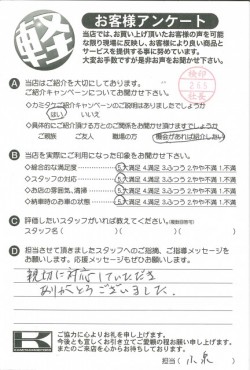 軽
お客様アンケート
当店では、お買い上げ頂いたお客様の声を可能
な限り現場に反映し、お客様により良い商品と
サービスを提供する事に努めています。
大変お手数ですが是非お声をお聞かせ下さい。
A 当店はご紹介を大切にしております。
ご紹介キャンペーンについてお聞かせ下さい。
・カミタケご紹介キャンペーンのご説明はありましたでしょうか
はい いいえ
・具体的にご紹介頂ける方とのご関係をお聞かせ頂けますでしょうか
ご親族 ご友人 職場の方 機会があれば紹介したい
B 当店を実際にご利用になられた印象をお聞かせ下さい。
・総合的な満足度 5.大満足 4.満足 3.ふつう 2.やや不満 1.不満
・スタッフの対応 5.大満足 4.満足 3.ふつう 2.やや不満 1.不満
・お店の雰囲気、清掃 5.大満足 4.満足 3.ふつう 2.やや不満 1.不満
・納車時のお車の状態 5.大満足 4.満足 3.ふつう 2.やや不満 1.不満
C 評価したいスタッフがいれば教えてください。(複数回答可)
スタッフ名( )( )( )
D 担当させて頂きましたスタッフへのご指摘、ご指導メッセージを
お願いします。応援メッセージもぜひお願いします。
親切に対応していただき
ありがとうございました。
K
ご協力に心よりお礼を申し上げます。
今後とも宜しくお引き立てご愛顧の程お願い申し上げます。
またのご来店を心からお待ちしております。
担当( 小泉 )